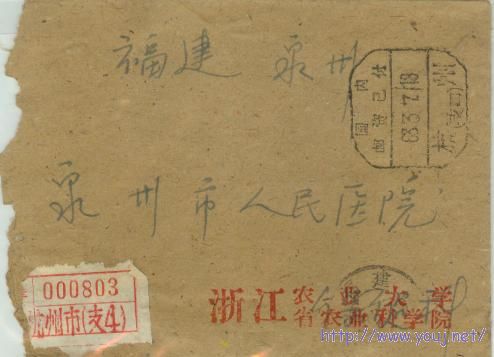 福建 泉州
国内
邮资已付
63.3.7.18
杭州(支四)
泉州市人民医院
000803
杭州市(支4)
浙江农业大学
省农业科学院
建
http://www.youj.net/